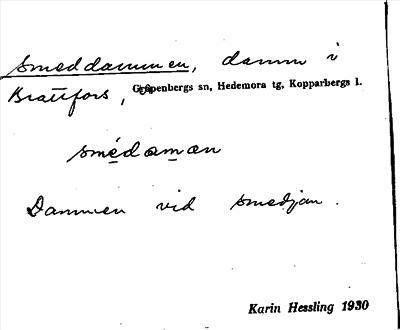 Smeddammen, damm i
Brattfors, Garpenbergs sn, Hedemora tg, Kopparbergs l.
smédaman
Dammen vid smedjan.
Karin Hessling 1930